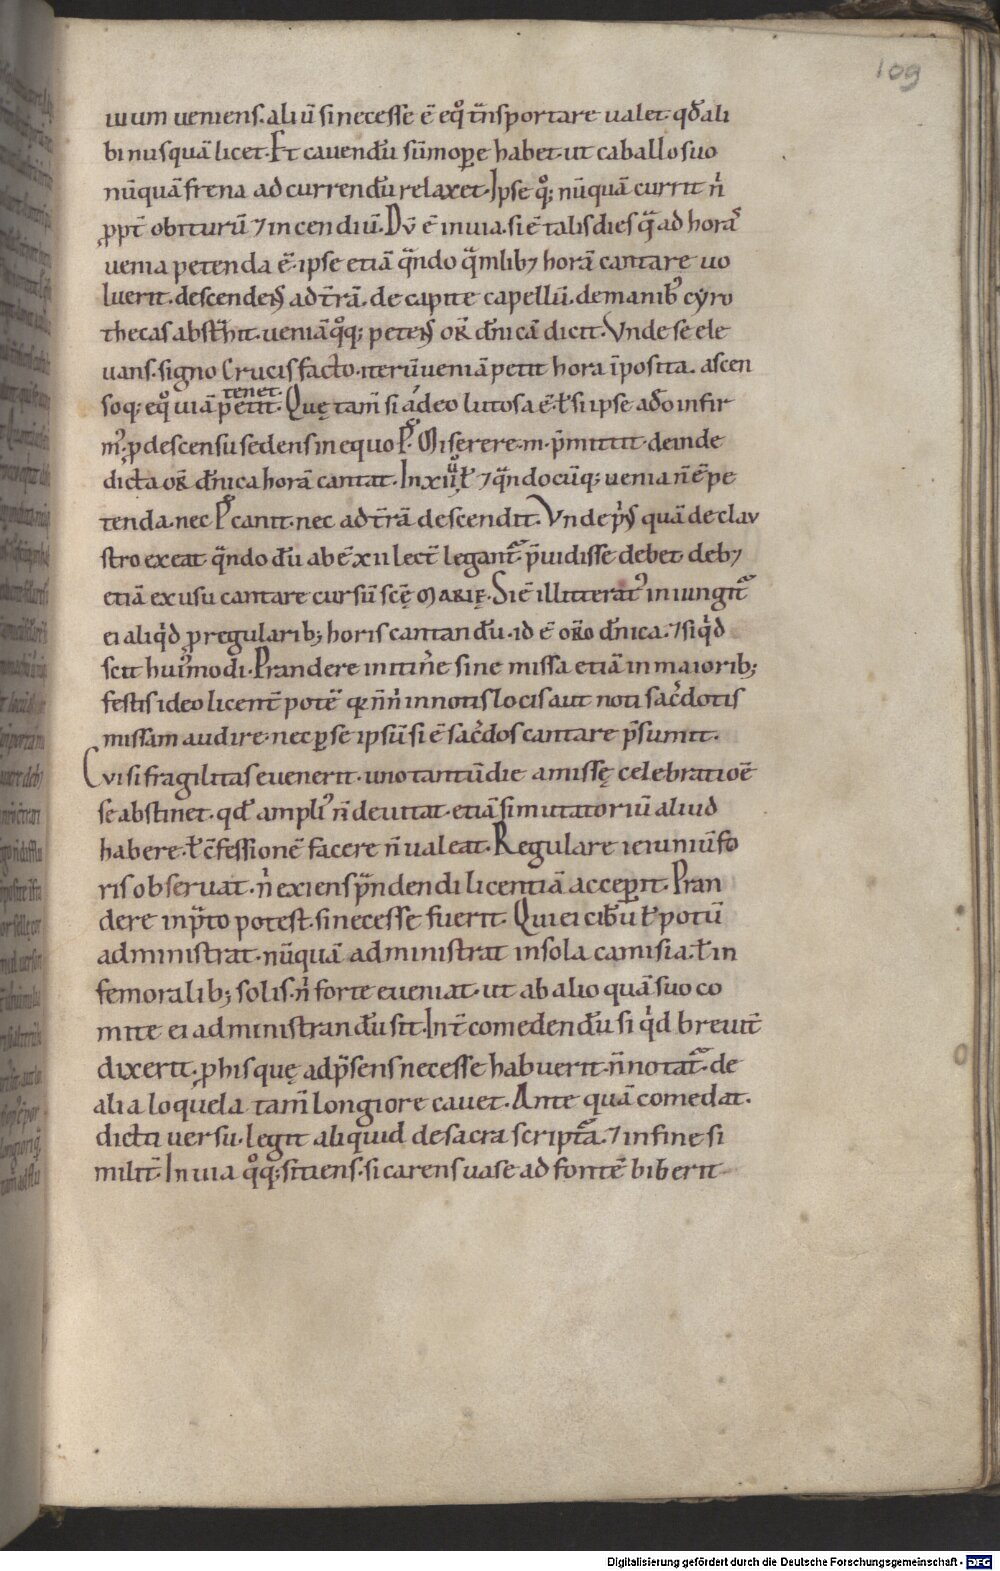 109
uium ueniens. aliū si necesse ē eq̊ t̄nsportare ualet. qđ ali
bi nusquā licet. Et cauendū sūmopere habet. ut caballo suo
nūquā frena ad currendū relaxet. Ipse q̊; nūquā currit n̄
ꝓpt̄ obiturū ⁊ incendiū. Dū ē in uia. si ē talis dies q̄ ad horā
uenia petenda ē. ipse etiā q̄ndo q̄mlib; horā cantare uo
luerit. descendens ad t̄rā. de capite capellū. de manib; cyro
thecas abst̄hit. ueniā q̊q; petens or̄ dn̄icā dicit. Vnde se ele
uans. signo crucis facto. iterū ueniā petit hora īposita. ascen
so q; eq̊ uiā petit. tenet. Quę tam̄ si adeo lutosa ē. ł si ipse adeo infir
m᾿. ꝓ descensu sedens in equo P̄. Miserere. m. p̄mittit. deinde
dicta or̄ dn̄ica horā cantat. In xii ł ⁊ q̄ndocūq; uenia n̄ ē pe
tenda. nec P̄ canit. nec ad t̄rā descendit. Vnde p̄us quā de clau
stro exeat q̄ndo dū ab ē xii lect̄ legant᷑ p̄uidisse debet. deb;
etiā ex usu cantare cursū scę MARIĘ. Si ē illitterat᾿ iniungit᷑
ei aliq̄d ꝓ regularib; horis cantandū. id ē or̄o dn̄ica. ⁊ siq̄d
scit hui᾿modi. Prandere in itin̄e sine missa etiā in maiorib;
festis ideo licent̄ potē. q̄ n̄ n̄ in notis locis aut noti sac̄dotis
missam audire. nec ꝑ se ipsū si ē sac̄dos cantare p̄sumit.
Cui si fragilitas euenerit. uno tantū die a missę celebratioē
se abstinet. qđ ampl᾿ n̄ deuitat. etiā si mutatoriū aliud
habere. ł c̄fessionē facere n̄ ualeat. Regulare ieiuniū fo
ris obseruat. n̄ exiens p̄ndendi licentiā acceperit. Pran
dere in p̄to potest. si necesse fuerit. Qui ei cibū ł potū
administrat. nūquā administrat in sola camisia. ł in
femoralib; solis. n̄ forte eueniat. ut ab alio quā suo co
mite ei administrandū sit. Int̄ comedendū si q̄d breuit̄
dixerit. ꝓ his quę ad p̄sens necesse habuerit. n̄ notat᷑. de
alia loquela tam̄ longiore cauet. Ante quā comedat.
dicti uersu. legit aliquid de sacra scriptᷓa. ⁊ in fine si
milit̄. In uia q̊q; sitiens. si carens uase ad fontē biberit
Digitalisierung gefördert durch die Deutsche Forschungsgemeinschaft - DFG